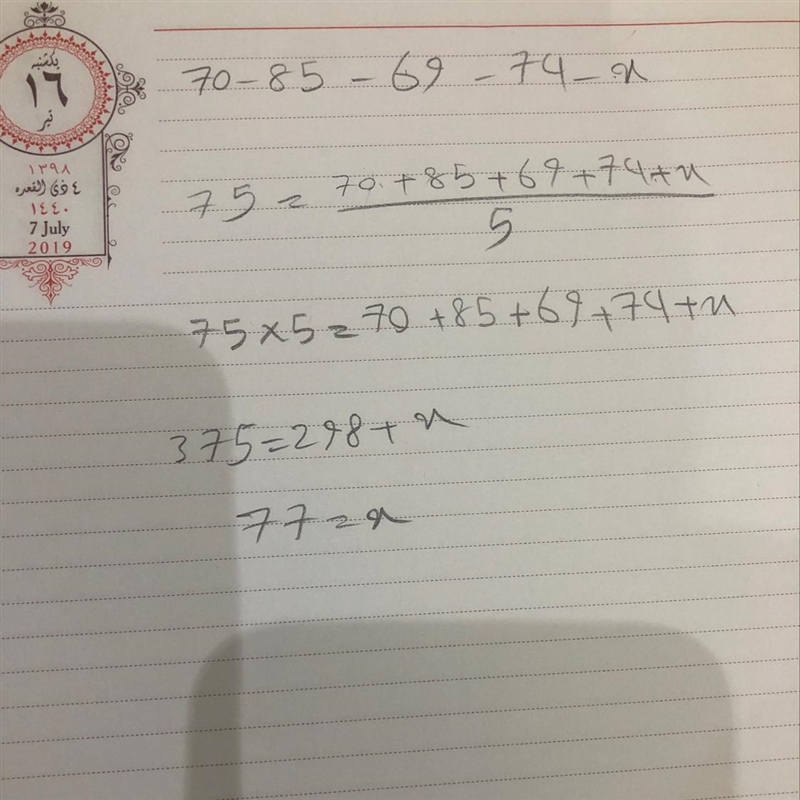 یکشنبه
۱۶
تیر
۱۳۹۸
٤ ذی القعده
١٤٤٠
7 July
2019
70 - 85 - 69 - 74 - x
75 = 70 + 85 + 69 + 74 + x
5
75 × 5 = 70 + 85 + 69 + 74 + x
375 = 298 + x
77 = x